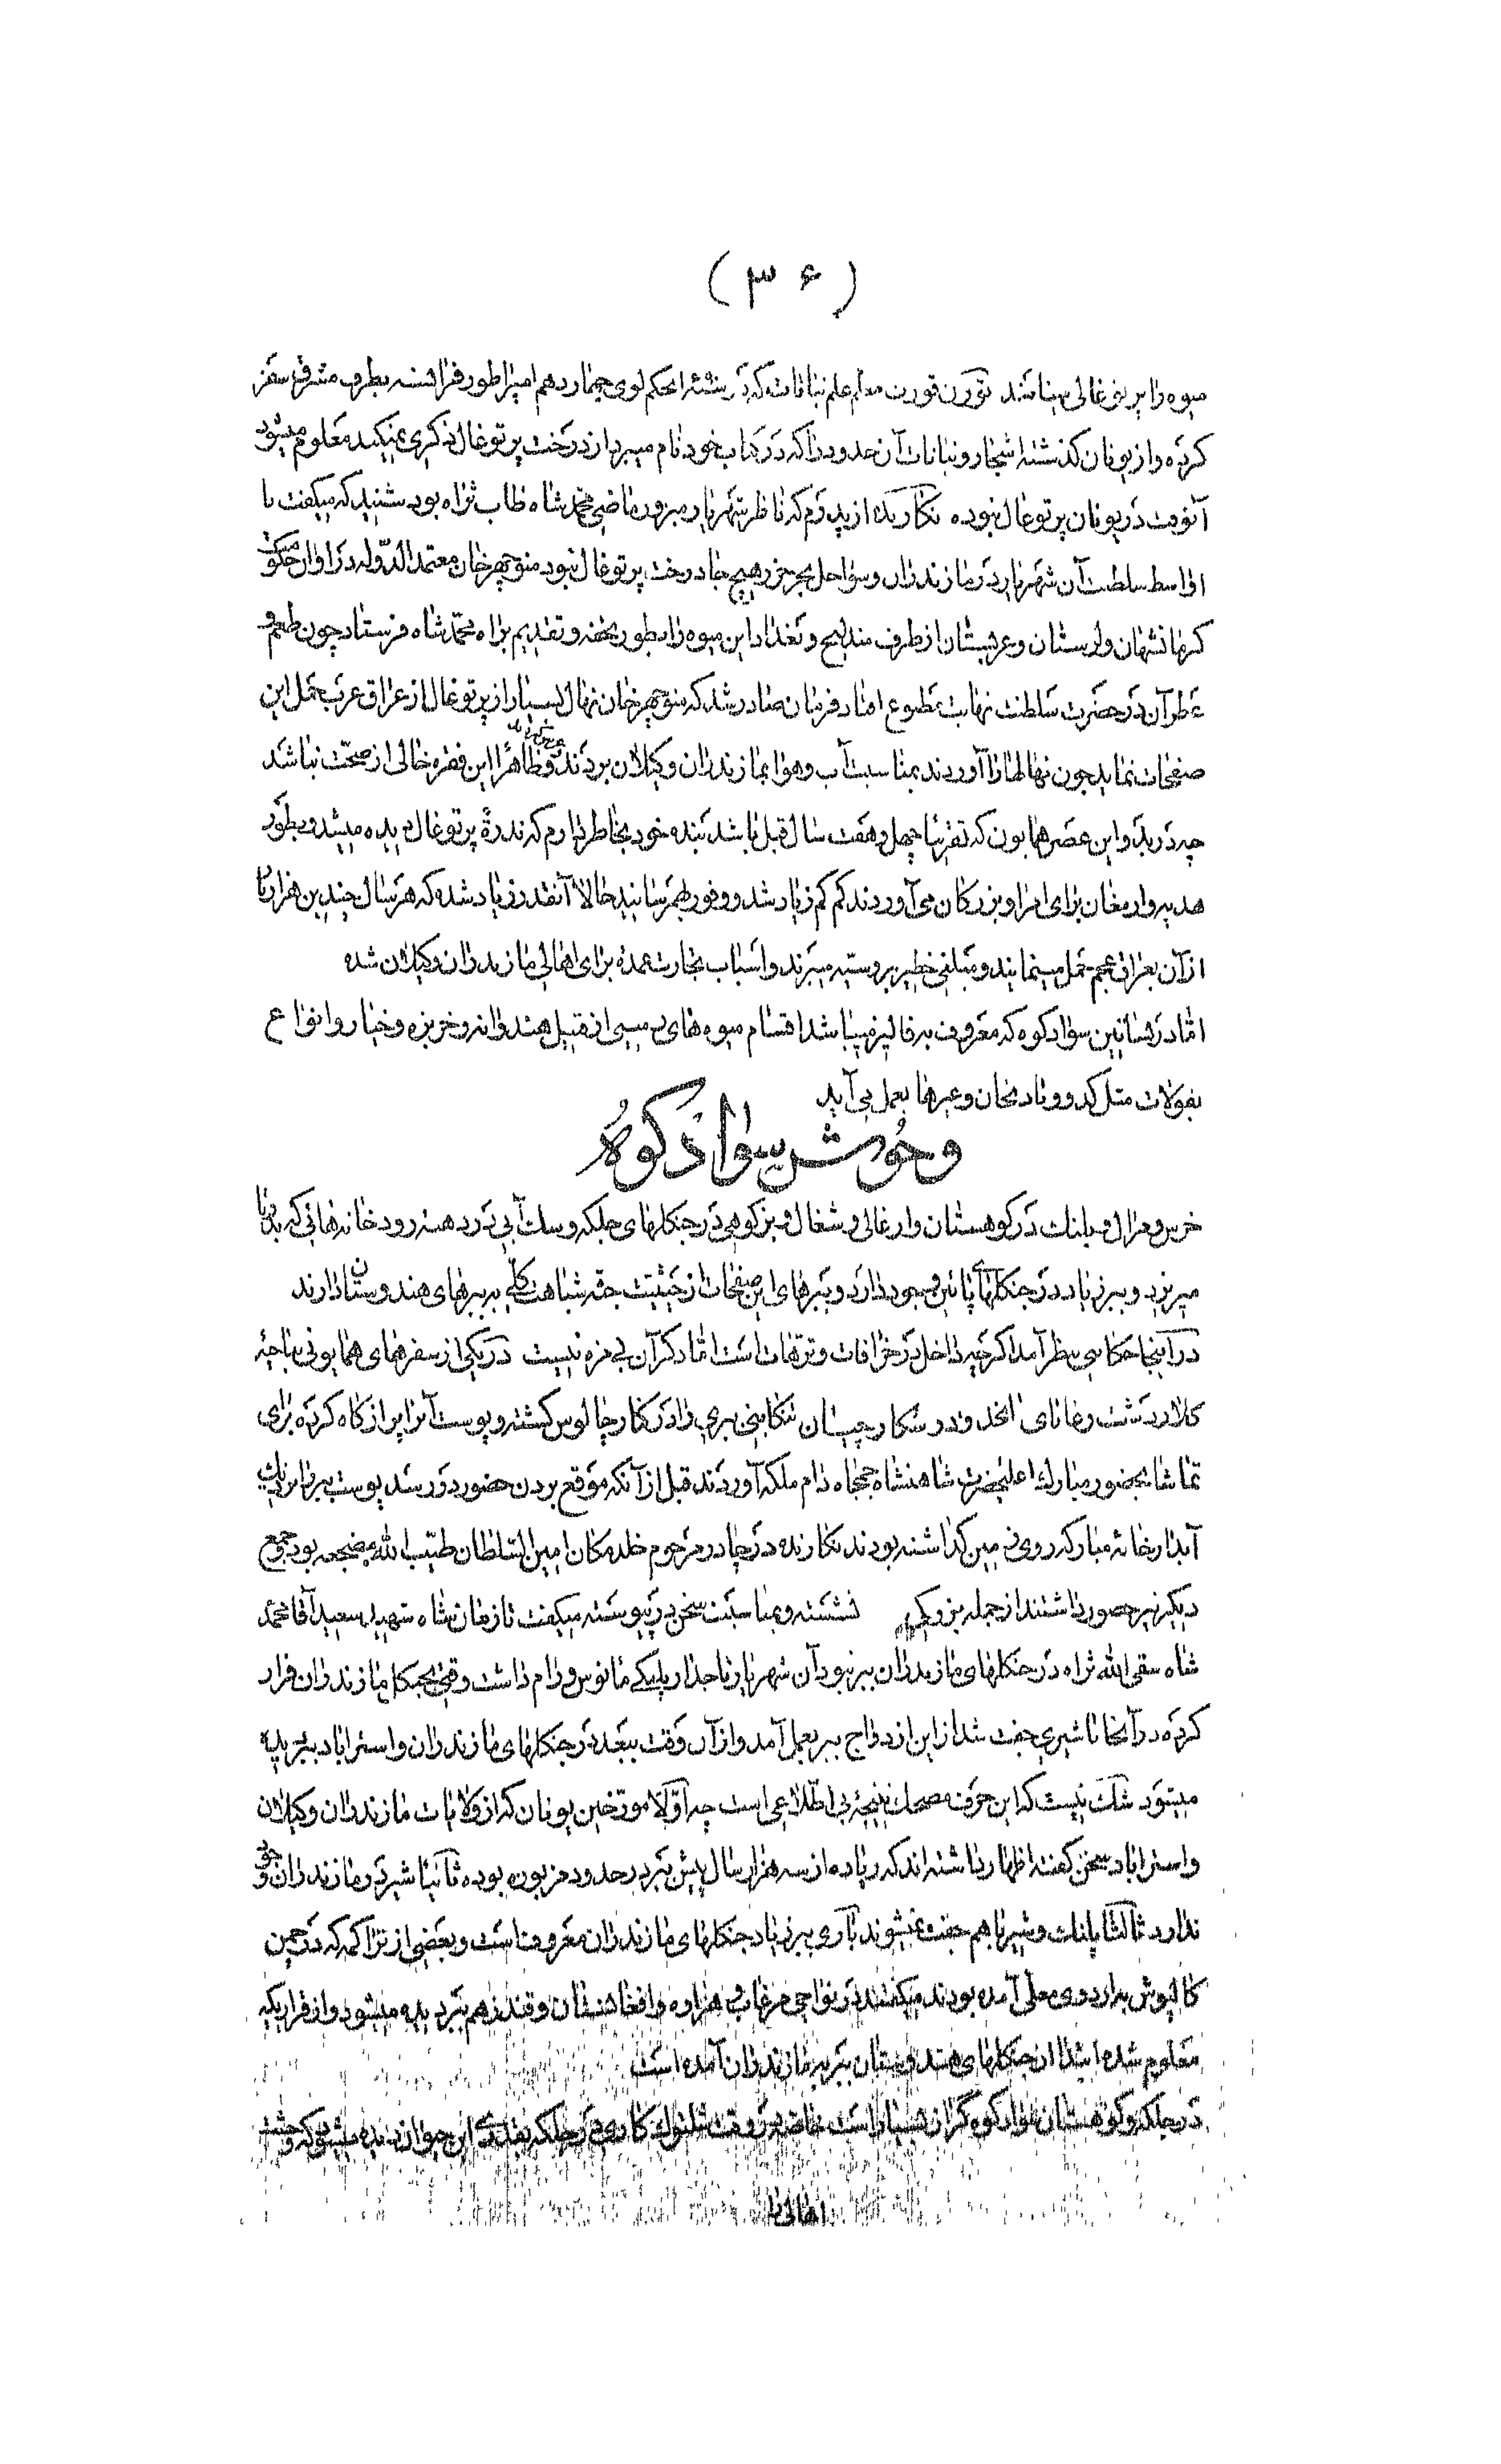 (۳۶)
میوه را پرتوغالی مینامند تورن فورت معلم علم نباتات که در سنهٔ بحکم لوی چهاردهم امپراطور فرانسه بطرف مشرق سفر
کرده و از یونان گذشته اشجار و نباتات آن حدود را که در کتاب خود نام میبرد از درخت پرتوغال ذکری نمیکند معلوم میشود
آنوقت در یونان پرتوغال نبوده نگارنده از پدرم که ناظر شهریار مبرور ماضی محمد شاه طاب ثراه بود شنید که میگفت تا
اواسط سلطنت آن شهریار در مازندران و سواحل بحر خزر هیچ جا درخت پرتوغال نبود منوچهر خان معتمد الدوله در اوان حکومت
کرمانشهان و لرستان و عربستان از طرف مندلیج و بغداد این میوه را بطور تحفه و تقدیم براه محمد شاه فرستاد چون طعم و
عطر آن در حضرت سلطنت نهایت مطبوع افتاد فرمان صادر شد که منوچهر خان نهال بسیار از پرتوغال از عراق عرب حمل این
صفحات نماید چون نهالها را آوردند بمناسبت آب و هوا بمازندران و گیلان بردند و غرس کردند و ظاهراً این فقره خالی از صحت نباشد
چه در بدو این عصر همایون که تقریباً چهل و هفت سال قبل باشد بنده خود بخاطر دارم که ندرةً پرتوغال دیده میشد و بطور
هدیه و ارمغان برای امرا و بزرگان می‌آوردند کم کم زیاد شد و وفور بهمرسانید حالا آنقدر زیاد شده که هر سال چندین هزار بار
از آن بعراق عجم حمل مینمایند و مبلغی خطیر بروسیه میبرند و اسباب تجارت عمده برای اهالی مازندران و گیلان شده
اما در بساتین سوادکوه که معروف به فالیز میباشد اقسام میوه‌های زمینی از قبیل هندوانه و خربزه و خیار و انواع
بقولات مثل کدو و بادنجان و غیرها بعمل می‌آید
وحوش سوادکوه
خرس و مرال و پلنگ در کوهستان و ارغالی و شغال و بزکوهی در جنگلهای جلگه و سگ آبی در دهنه رودخانه‌هائی که بدریا
میریزد و ببر زیاد در جنگلهای پائین وجود دارد و ببرهای این صفحات از حیثیت جثه شباهت کلی به ببرهای هندوستان دارند
در اینجا حکایتی بنظر آمد اگرچه داخل در خرافات و ترهات است اما ذکر آن بی‌مزه نیست در یکی از سفرهای همایونی بناحیهٔ
کلاردشت و شکارچیان تنکابنی ببری را در کنار چالوس کشته و پوست آنرا پر از کاه کرده برای
تماشا بحضور مبارک اعلیحضرت شاهنشاه جمجاه دام ملکه آوردند قبل از آنکه موقع بردن حضور در رسد پوست ببر را نزدیک
آبدارخانهٔ مبارکه روی زمین گذاشته بودند نگارنده در چادر مرحوم خلد مکان امین السلطان طیب الله مضجعه بود جمعی
دیگر نیز حضور داشتند از جمله بزرگی نشسته و بمناسبت سخن در پیوسته میگفت تا زمان شاه شهید سعید آقا محمد
شاه سقی الله ثراه در جنگلهای مازندران ببر نبود آن شهریار تاجدار پلنگی مانوس و رام داشت وقتی بجنگل مازندران فرار
کرده در آنجا با شیری جفت شد از این ازدواج ببر بعمل آمد و از آن وقت ببعد در جنگلهای مازندران و استراباد ببر پدید
میشود شک نیست که این حرف مضحک نتیجهٔ بی اطلاعی است چه اولاً مورخین یونان که از ولایات مازندران و گیلان
و استراباد سخن گفته اظهار داشته‌اند که زیاده از سه هزار سال پیش ببر در حدود مزبوره بوده ثانیاً شیر در مازندران وجود
ندارد ثالثاً پلنگ و شیر با هم جفت نمیشوند باری ببر زیاد جنگلهای مازندران معروفست و بعضی از تراکمه که در چمن
کالپوش به اردوی معلی آمده بودند میگفتند در نواحی مرغاب و هزاره و افغانستان و قندز هم ببر دیده میشود و از قراریکه
معلوم شده از جنگلهای هندوستان ببر به مازندران آمده است
در جلگه و کوهستان سوادکوه گراز بسیار است خاصه در وقت شلتوک کاری در جلگه بقدری این حیوان دیده میشود که وحشت
اهالی را